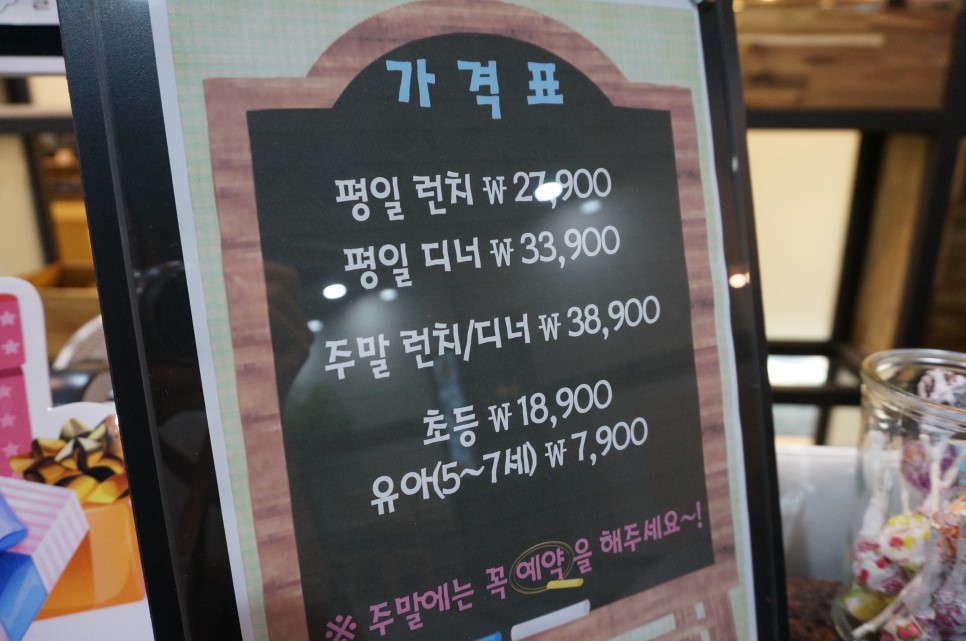 가격표
평일 런치 ₩ 27,900
평일 디너 ₩ 33,900
주말 런치/디너 ₩ 38,900
초등 ₩ 18,900
유아(5~7세) ₩ 7,900
※ 주말에는 꼭 예약을 해주세요~!